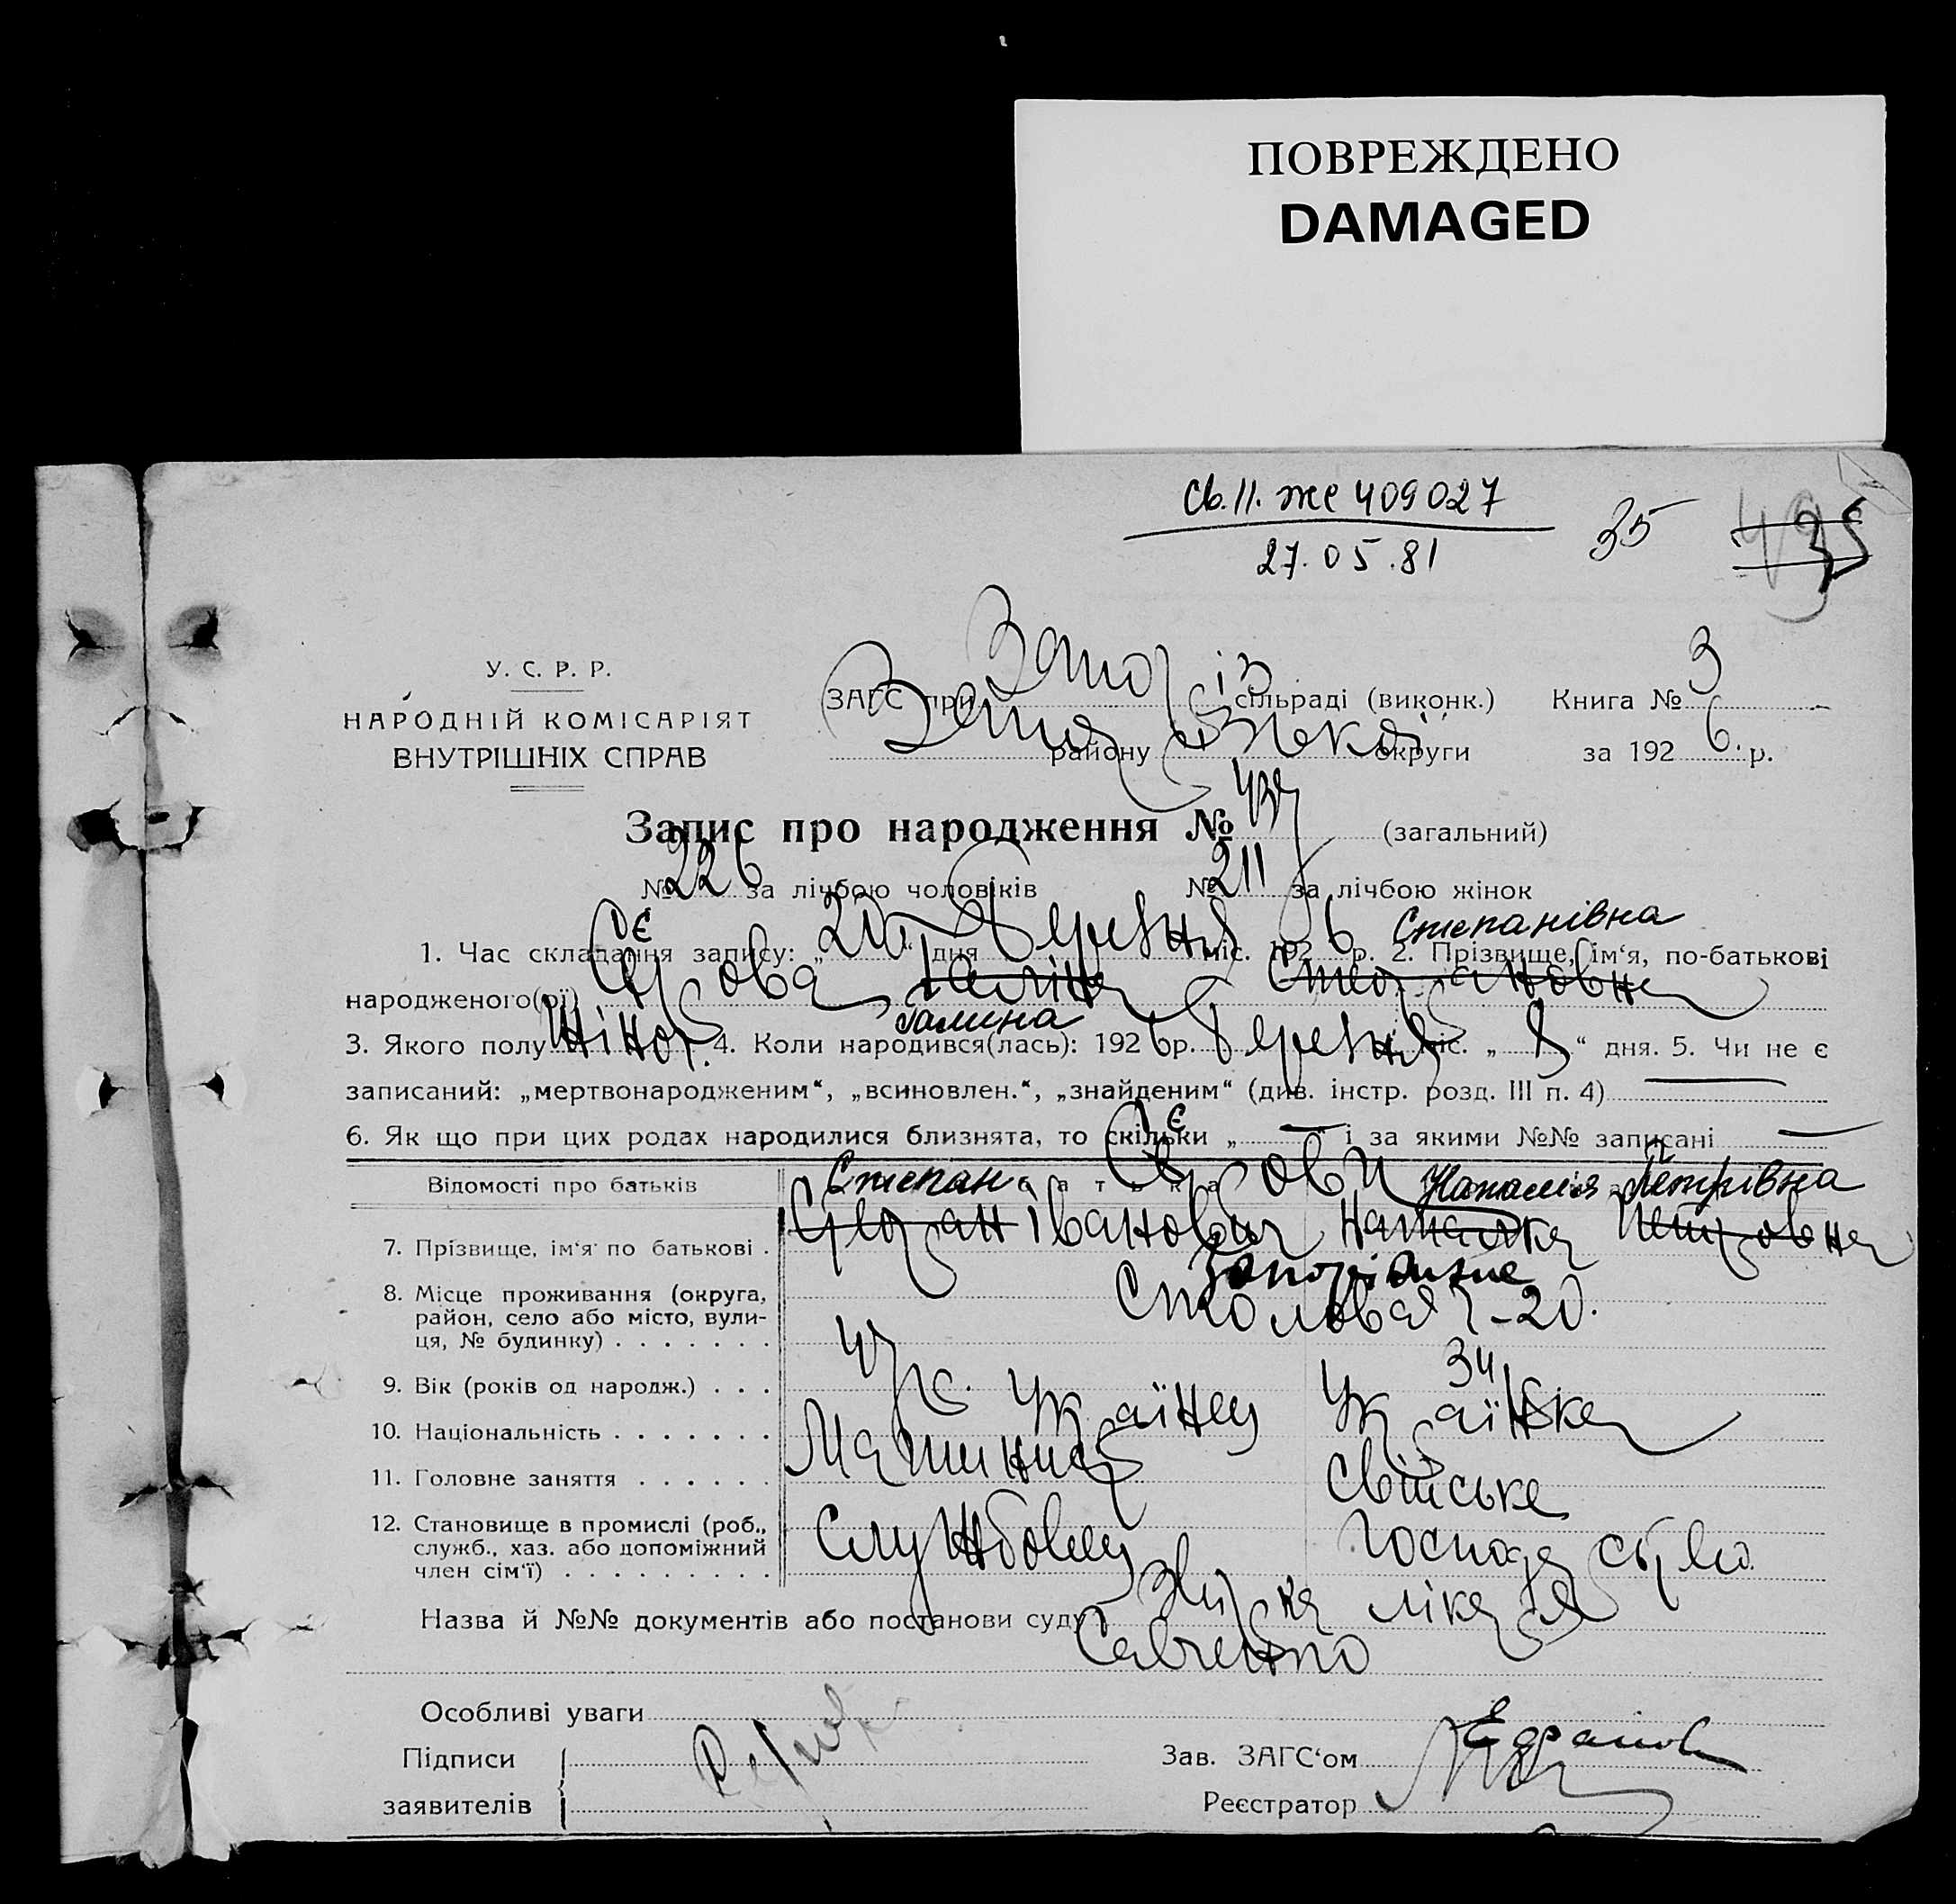 ПОВРЕЖДЕНО
DAMAGED
Св. II. же 409027
27.05.81
35
У. С. Р. Р.
НАРОДНІЙ КОМІСАРІЯТ
ВНУТРІШНІХ СПРАВ
ЗАГС при Запоріз сільраді (виконк.) Книга № 3
району округи за 1926. р.
Запис про народження № 437 (загальний)
№ 226 за лічбою чоловіків № 211 за лічбою жінок
Степанівна
1. Час складання запису: „20“ дня Березня міс. 1926 р. 2. Прізвище, ім‘я, по-батькові
народженого(ої)
Галина
3. Якого полу Жіноч. 4. Коли народився(лась): 1926 р. Березня міс. „8“ дня. 5. Чи не є
записаний: „мертвонародженим“, „всиновлен.“, „знайденим“ (див. інстр. розд. III п. 4) —
6. Як що при цих родах народилися близнята, то скільки „—“ і за якими №№ записані —
Відомості про батьків
Степан Наталія Петрівна
7. Прізвище, ім‘я по батькові . Степан Іванович Наталка Петровна
Запоріжжє
8. Місце проживання (округа, район, село або місто, вулиця, № будинку) . . . . . . . Столовая -20.
9. Вік (років од народж.) . . . 34
10. Національність . . . . . . . Українец Українка
11. Головне заняття . . . . . . Машиніст Свійське
12. Становище в промислі (роб., служб., хаз. або допоміжний член сім‘ї) . . . . . . . . . Службовец господарство
Назва й №№ документів або постанови суду лікаря
Савченко
Особливі уваги
Підписи Зав. ЗАГС‘ом
заявителів Реєстратор